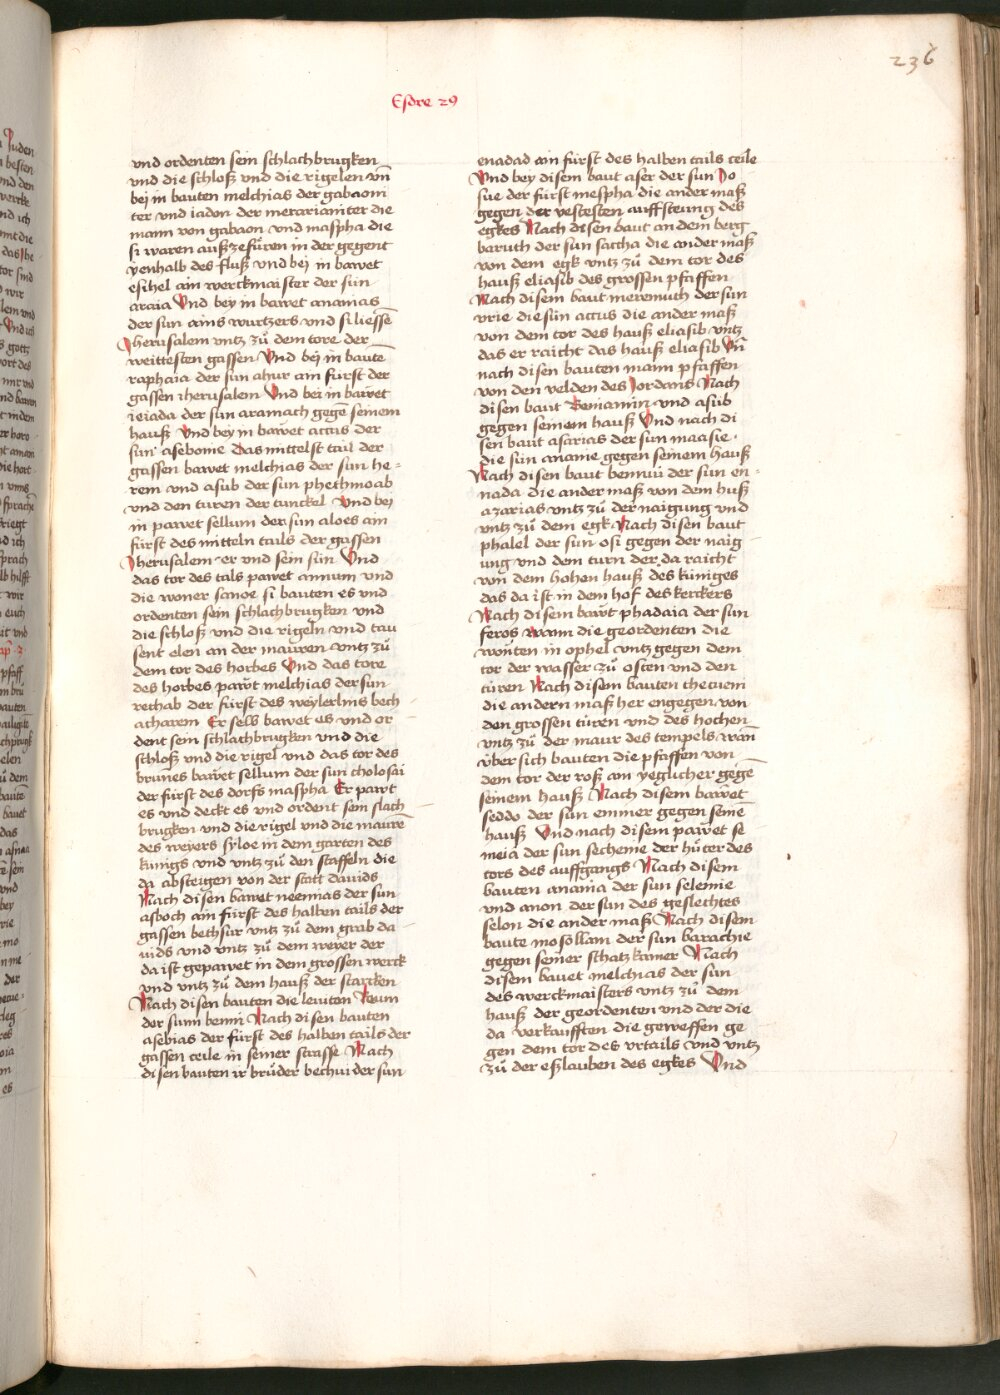 236
Esdre 29
vnd ordenten sein schlachbrugken
vnd die schloß vnd die rigelen vn̄
bei in bauten melchias der gabaoni
ter vnd iadon der meramaniter die
mann von gabaon vnd maspha die
si waren auß zefüren in der gegent
yenhalb des fluß vnd bei in bawet
esihel ain werckmaister der sün
araia Vnd bey in bawet ananias
der sun ains wurtzers vnd si liessē
Jherusalem vntz zů dem tore der
weittesten gassen Vnd bei in bautē
raphaia der sun ahur ain fürst der
gassen iherusalem Vnd bei in bawet
ieiada der sun aramach gegē seinem
hauß Vnd bey in bawet accus der
sun asebome Das mittelst tail der
gassen bawet melchias der sun he-
rem vnd asub der sun phethmoab
vnd den turen der tunckel Vnd bei
in pawet sellum der sun aloes ain
fürst des mitteln tails der gassen
Jherusalem er vnd sein sün Vnd
das tor des tals pawet annum vnd
die woner sanoe si bauten es vnd
ordenten sein schlachbrugken vnd
die schloß vnd die rigeln vnd tau
sent elen an der mauren vntz zů
dem tor des horbes Vnd das tore
des horbes pawt melchias der sun
rechab der fürst des weylerlins bech
acharem Er selb bawet es vnd or
dent sein schlachbrugken vnd die
schloß vnd die rigel vnd das tor des
brunes bawet sellum der sun cholosai
der fürst des dorfs maspha Er pawt
es vnd deckt es vnd ordent sein slach
brugken vnd die rigel vnd die maurē
des weyers syloe in dem garten des
kunigs vnd vntz zů den staffeln die
da absteigen von der statt dauids
Nach disen bawet neemias der sun
asboch ain fürst des halben tails der
gassen bethsur vntz zů dem grab da
uids vnd vntz zů dem weyer der
da ist gepawet in dem grossen werck
vnd vntz zů dem hauß der starcken
Nach disen bauten die leuiten Reum
der sunn benni Nach disen bauten
asebias der fürst des halben tails der
gassen ceile in seiner strasse Nach
disen bauten ir brüder bechui der sun
enadad ain fürst des halben tails ceile
Vnd bey disem baut aser der sun Jo
sue der fürst mespha die ander maß
gegen der vestesten auffsteung des
egkes Nach disen baut an dem berg
baruth der sun saccha die ander maß
von dem egk vntz zů dem tor des
hauß eliasib des grossen pfaffen
Nach disem baut meremuth der sun
vrie die sün accus die ander maß
von dem tor des hauß eliasib vntz
das er raicht das hauß eliasib Vn̄
nach disen bauten mann pfaffen
von den velden des Jordans Nach
disen baut Beniamin vnd asub
gegen seinem hauß Vnd nach di
sen baut asarias der sun maasie
die sün ananie gegen seinem hauß
Nach disen baut bennui der sun en-
nada die ander maß von dem huß
azarias vntz zů der naigung vnd
vntz zů dem egk Nach disen baut
phalel der sun osi gegen der naig
ung vnd dem turn der da raicht
von dem hohen hauß des küniges
das da ist in dem hof des kerckers
Nach disem bawt phadaia der sun
feros wann die geordenten die
wonten in ophel vntz gegen dem
tor der wasser zů osten vnd den
türen Nach disem bauten thecueni
die andern maß her engegen von
den grossen türen vnd des hochen
vntz zů der maur des tempels wan̄
vber sich bauten die pfaffen von
dem tor der roß an yeglicher gegē
seinem hauß Nach disem bawet
seddo der sun emmer gegen seinē
hauß Vnd nach disem pawet se
meia der sun sechenie der hüter des
tors des auffgangs Nach disem
bauten anania der sun selemie
vnd anon der sun des geslechtes
selon die ander maß Nach disem
baute mosollam der sun barachie
gegen seiner schatzkamer Nach
disem bauet melchias der sun
des werckmaisters vntz zů dem
hauß der geordenten vnd der die
da verkaufften die geweffen ge
gen dem tor des vrtails vnd vntz
zů der eßlauben des egkes Vnd